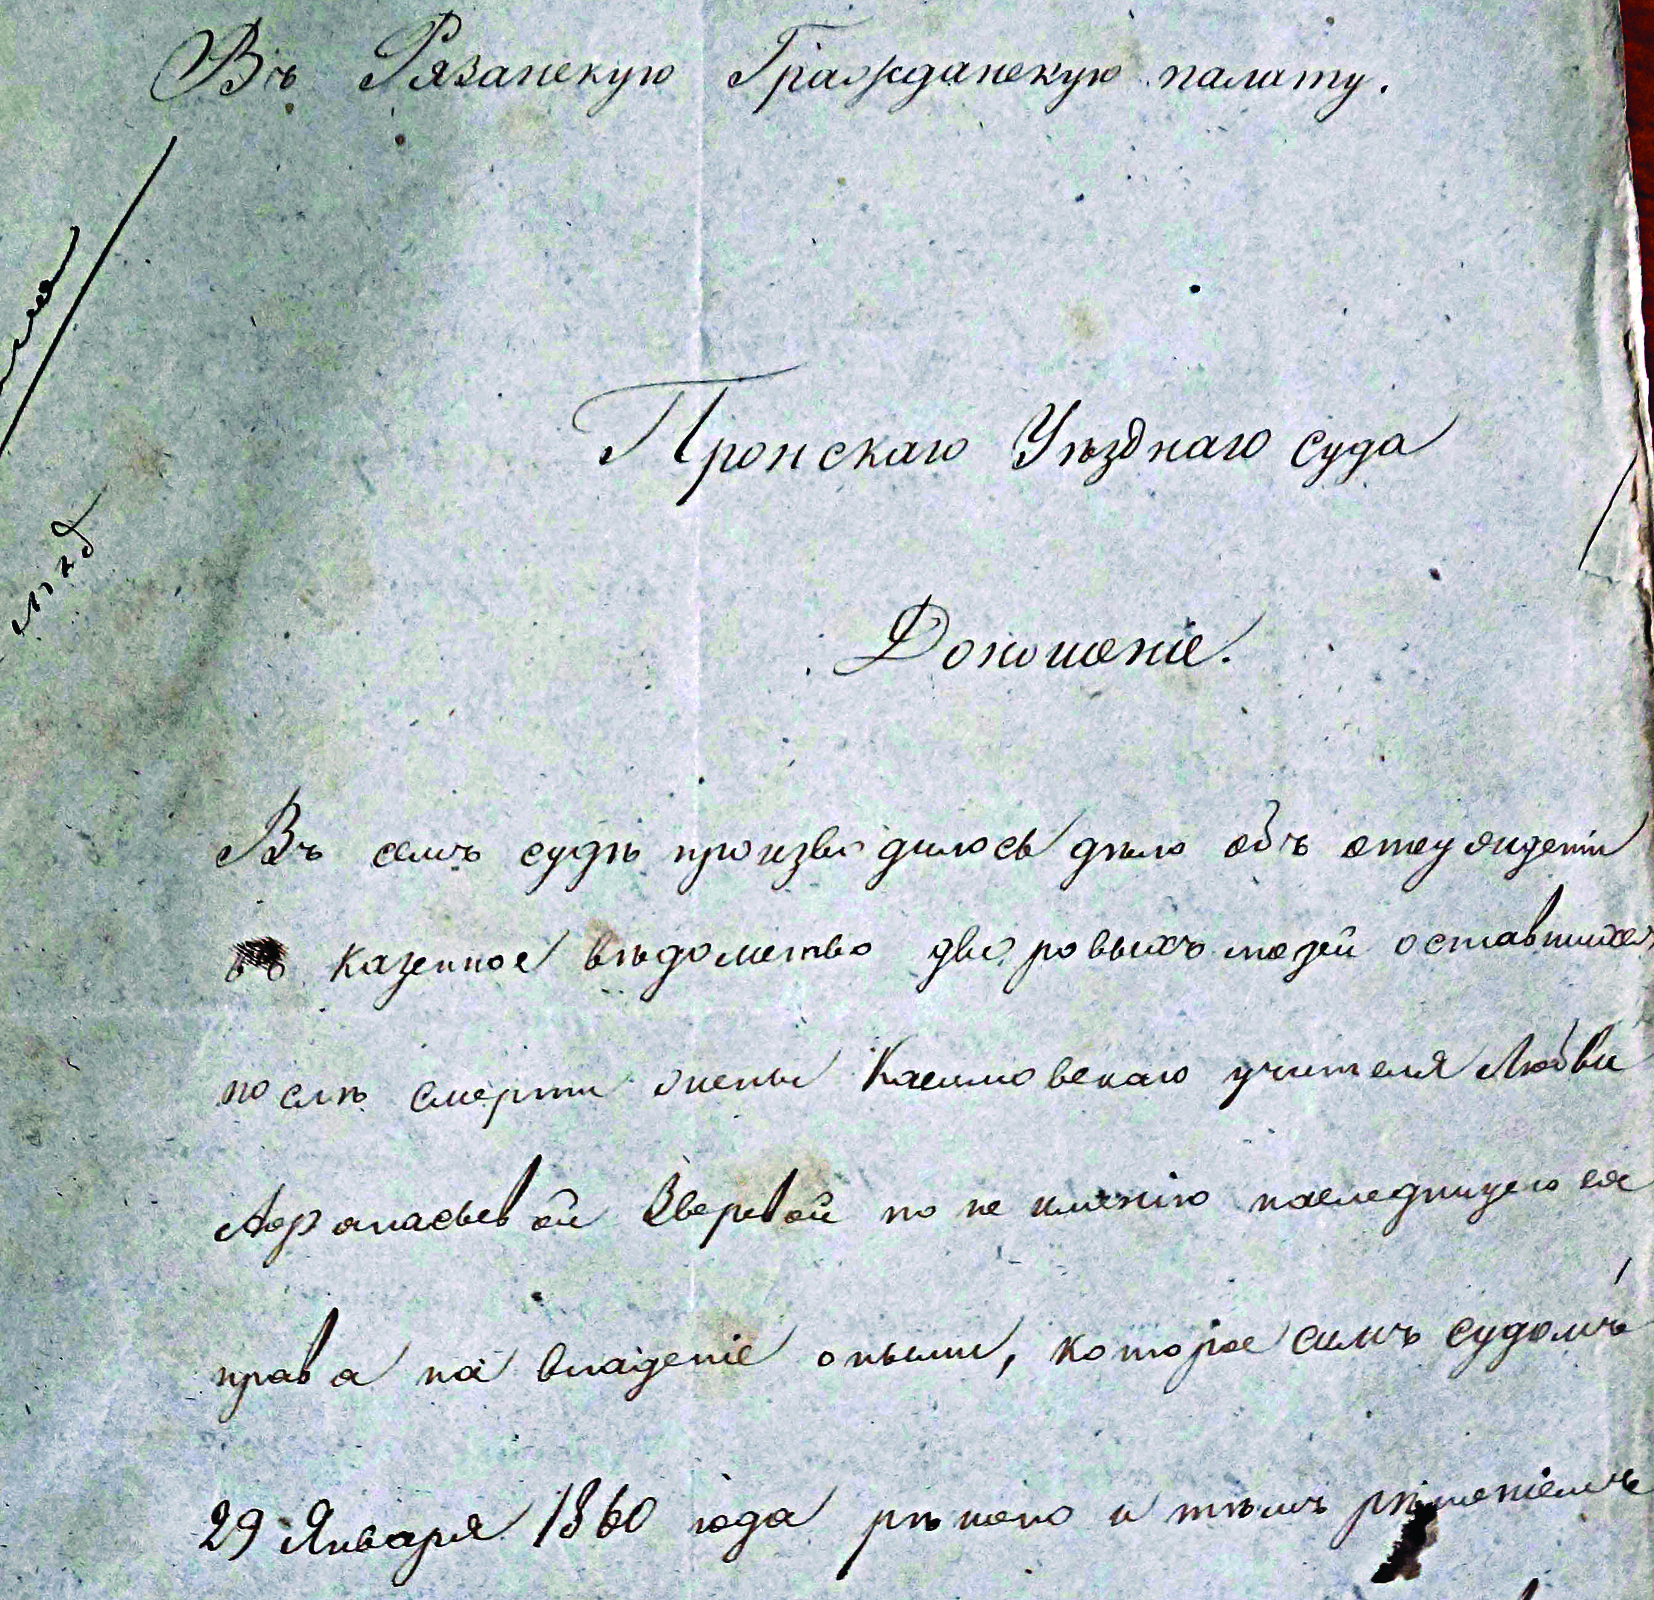 Въ Рязанскую Гражданскую палату.
Пронскаго Уѣзднаго суда
Доношеніе.
Въ семъ судѣ производилось дѣло объ отсужденіи
въ казенное вѣдомство дворовыхъ людей оставшихся
послѣ смерти жены Касимовскаго учителя Любви
Афанасьевой Зверевой по не имѣнію наследницею ея
права на владеніе оными, которое симъ судомъ
29 Января 1860 года рѣшено и тѣмъ рѣшеніемъ